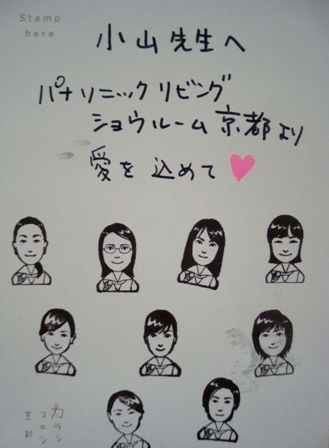 Stamp
here
小山先生へ
パナソニックリビング
ショウルーム京都より
愛を込めて
カラン
コロン
京都